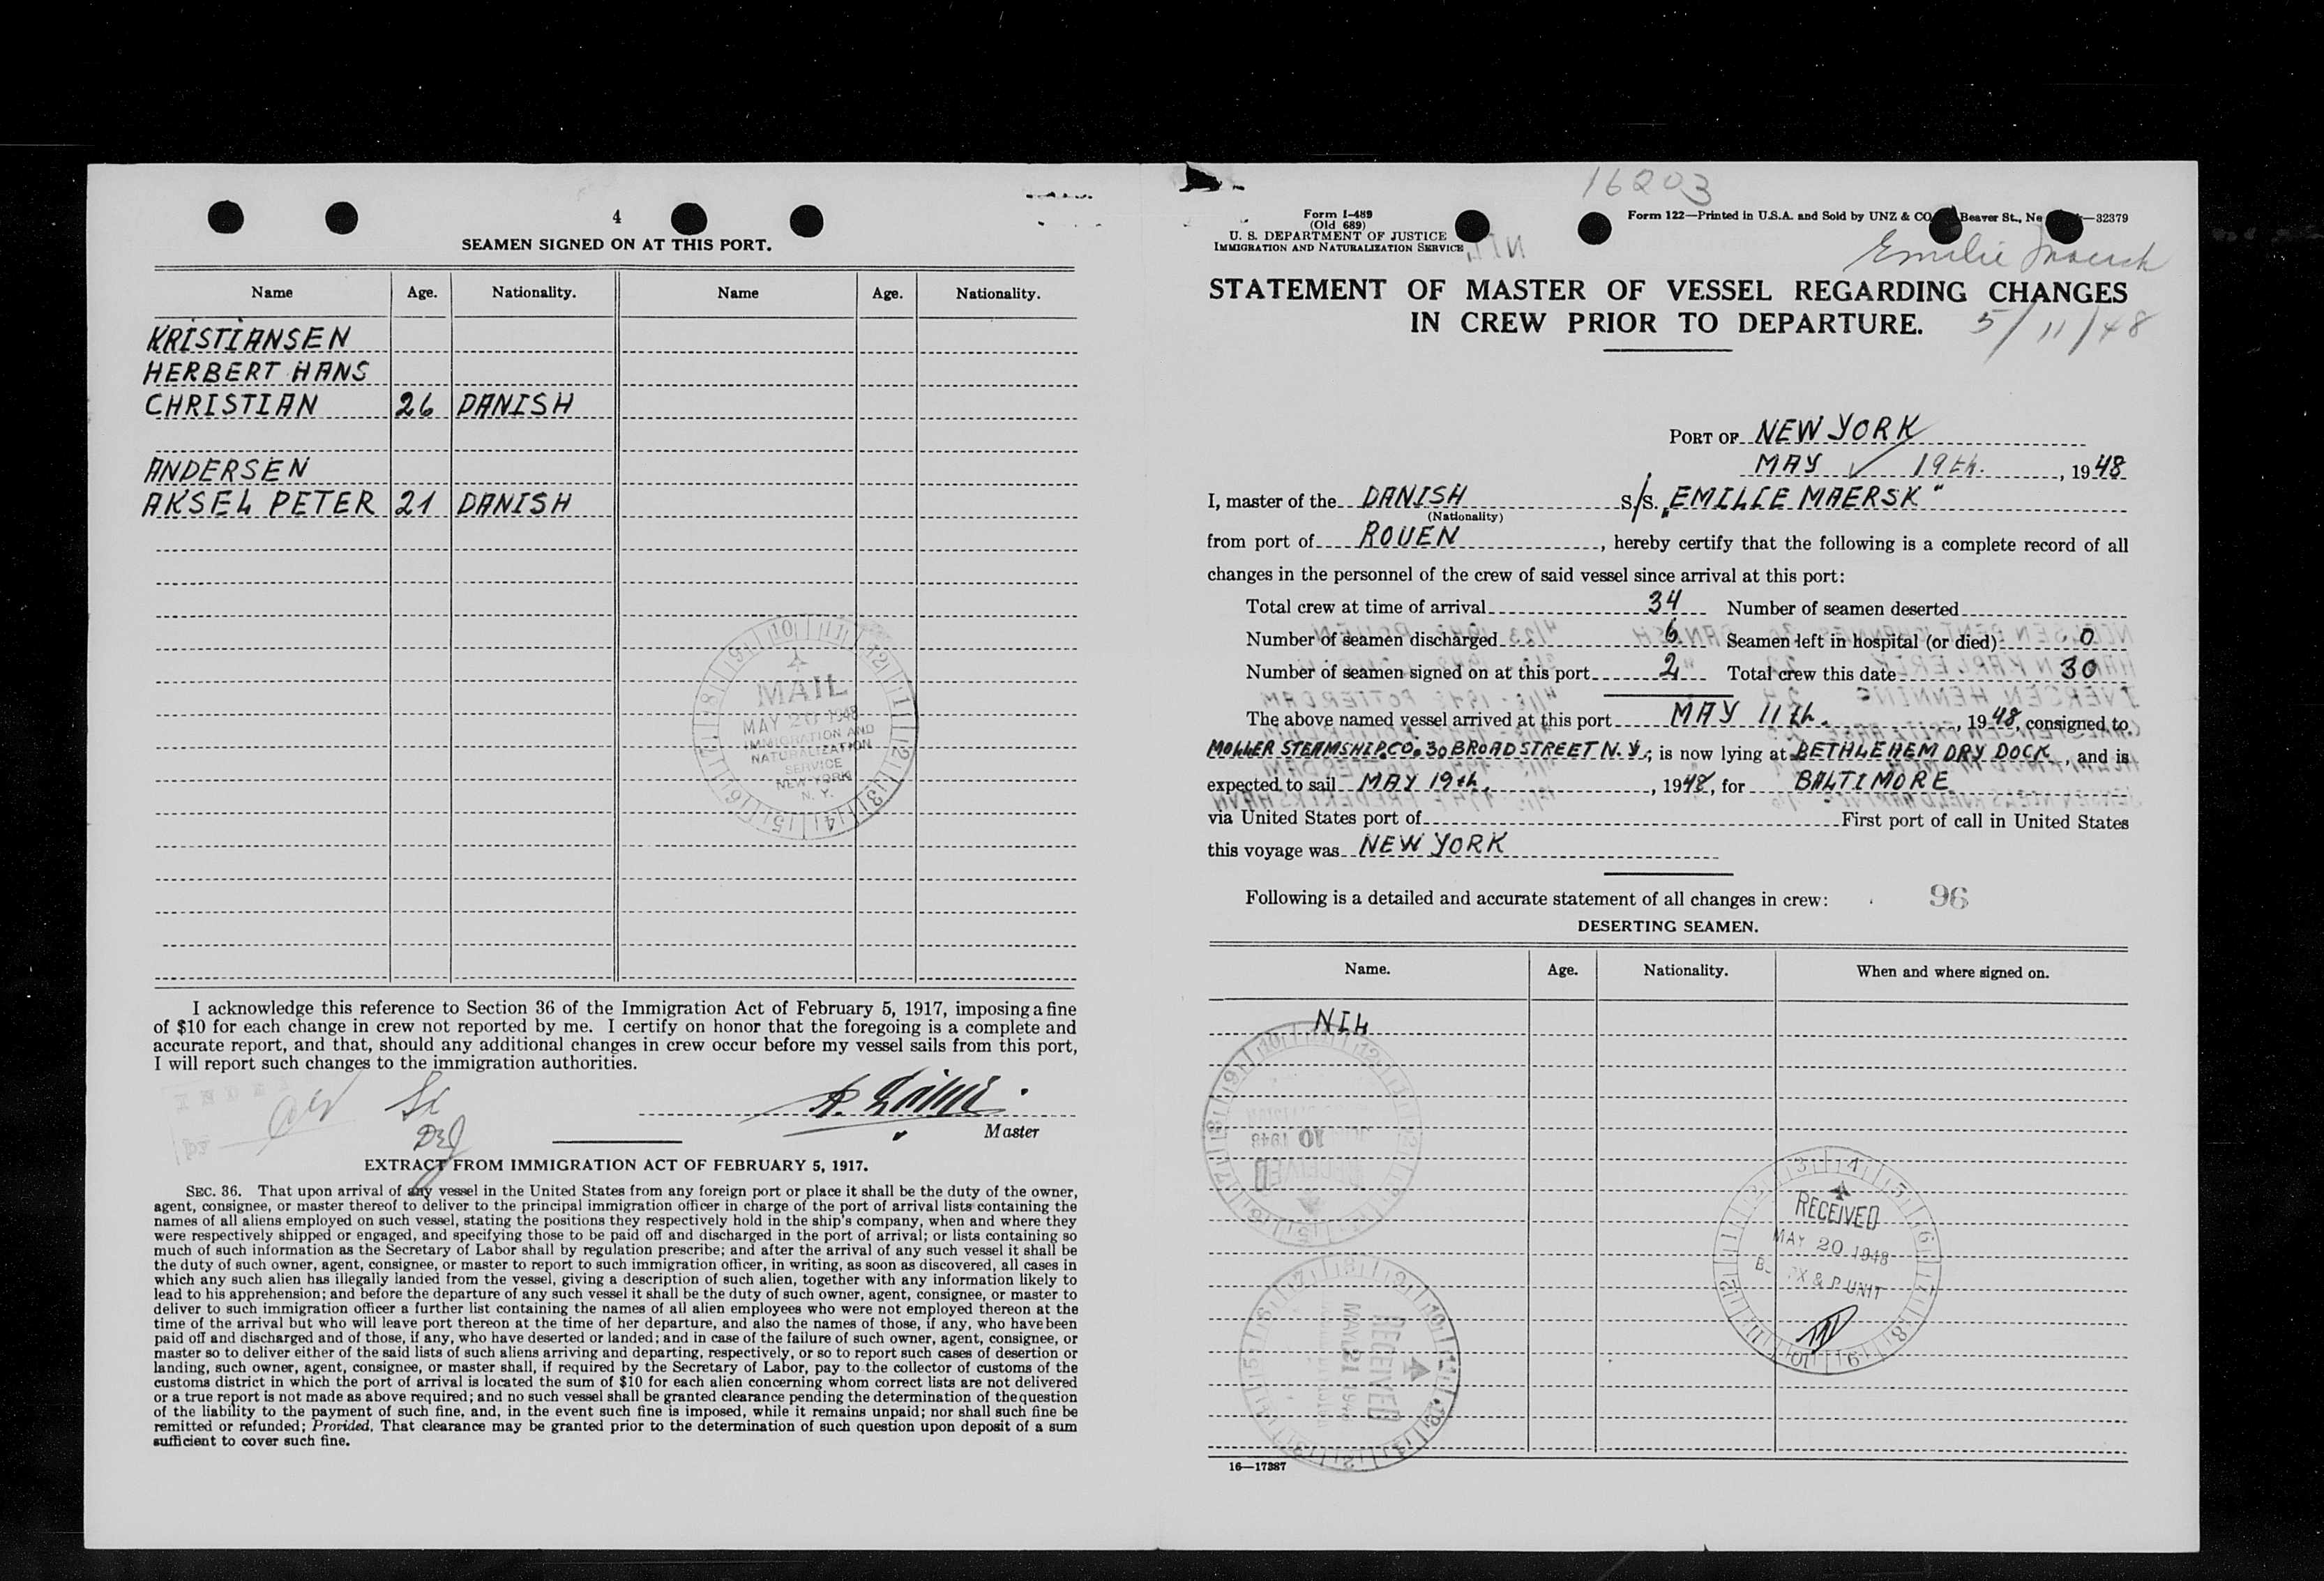 4
SEAMEN SIGNED ON AT THIS PORT.
Name Age. Nationality. Name Age. Nationality.
KRISTIANSEN
HERBERT HANS
CHRISTIAN 26 DANISH
ANDERSEN
AKSEL PETER 21 DANISH
MAIL
MAY 20 1948
IMMIGRATION AND
NATURALIZATION
SERVICE
NEW YORK
N. Y.
I acknowledge this reference to Section 36 of the Immigration Act of February 5, 1917, imposing a fine
of $10 for each change in crew not reported by me. I certify on honor that the foregoing is a complete and
accurate report, and that, should any additional changes in crew occur before my vessel sails from this port,
I will report such changes to the immigration authorities.
Master
EXTRACT FROM IMMIGRATION ACT OF FEBRUARY 5, 1917.
SEC. 36. That upon arrival of any vessel in the United States from any foreign port or place it shall be the duty of the owner,
agent, consignee, or master thereof to deliver to the principal immigration officer in charge of the port of arrival lists containing the
names of all aliens employed on such vessel, stating the positions they respectively hold in the ship's company, when and where they
were respectively shipped or engaged, and specifying those to be paid off and discharged in the port of arrival; or lists containing so
much of such information as the Secretary of Labor shall by regulation prescribe; and after the arrival of any such vessel it shall be
the duty of such owner, agent, consignee, or master to report to such immigration officer, in writing, as soon as discovered, all cases in
which any such alien has illegally landed from the vessel, giving a description of such alien, together with any information likely to
lead to his apprehension; and before the departure of any such vessel it shall be the duty of such owner, agent, consignee, or master to
deliver to such immigration officer a further list containing the names of all alien employees who were not employed thereon at the
time of the arrival but who will leave port thereon at the time of her departure, and also the names of those, if any, who have been
paid off and discharged and of those, if any, who have deserted or landed; and in case of the failure of such owner, agent, consignee, or
master so to deliver either of the said lists of such aliens arriving and departing, respectively, or so to report such cases of desertion or
landing, such owner, agent, consignee, or master shall, if required by the Secretary of Labor, pay to the collector of customs of the
customs district in which the port of arrival is located the sum of $10 for each alien concerning whom correct lists are not delivered
or a true report is not made as above required; and no such vessel shall be granted clearance pending the determination of the question
of the liability to the payment of such fine, and, in the event such fine is imposed, while it remains unpaid; nor shall such fine be
remitted or refunded; Provided, That clearance may be granted prior to the determination of such question upon deposit of a sum
sufficient to cover such fine.
16203
Form I-489
(Old 689)
U. S. DEPARTMENT OF JUSTICE
IMMIGRATION AND NATURALIZATION SERVICE
Form 122—Printed in U.S.A. and Sold by UNZ & CO. Beaver St., Ne —32379
Emilie Maersk
STATEMENT OF MASTER OF VESSEL REGARDING CHANGES
IN CREW PRIOR TO DEPARTURE.
5/11/48
PORT OF NEW YORK
MAY 19th. , 1948
I, master of the DANISH S/S. "EMILIE MAERSK"
(Nationality)
from port of ROUEN , hereby certify that the following is a complete record of all
changes in the personnel of the crew of said vessel since arrival at this port:
Total crew at time of arrival 34 Number of seamen deserted
Number of seamen discharged 6 Seamen left in hospital (or died) 0
Number of seamen signed on at this port 2 Total crew this date 30
The above named vessel arrived at this port MAY 11th. , 1948, consigned to
MOLLER STEAMSHIP.CO. 30 BROADSTREET N.Y.; is now lying at BETHLEHEM DRY DOCK , and is
expected to sail MAY 19th. , 1948, for BALTIMORE
via United States port of First port of call in United States
this voyage was NEW YORK
Following is a detailed and accurate statement of all changes in crew:
96
DESERTING SEAMEN.
Name. Age. Nationality. When and where signed on.
NIL
RECEIVED
10 1948
RECEIVED
MAY 20 1948
X & P UNIT
RECEIVED
MAY 21 1948
16—17387